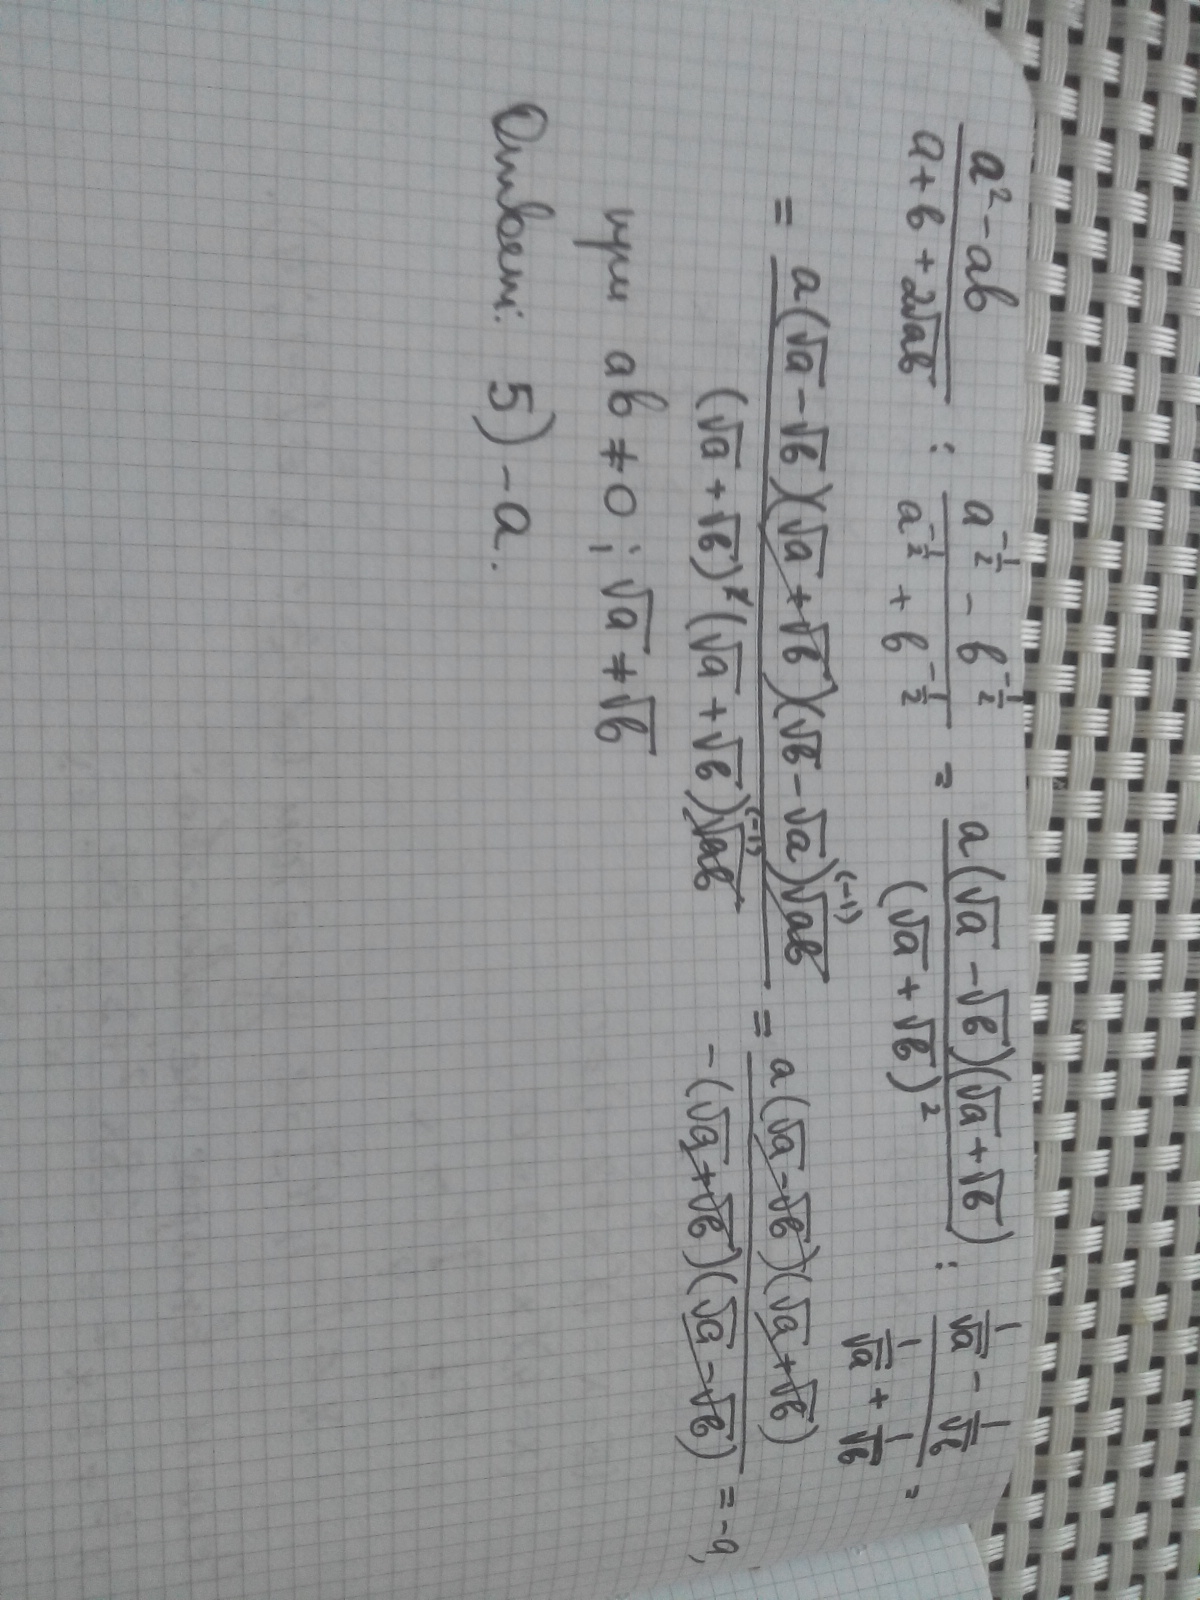 (a² - ab)/(a + b + 2√ab) : (a^(-1/2) - b^(-1/2))/(a^(-1/2) + b^(-1/2)) = a(√a - √b)(√a + √b)/(√a + √b)² : (1/√a - 1/√b)/(1/√a + 1/√b) =
= a(√a - √b)(√a + √b)(√b - √a)^(-1)√ab^(-1)/(√a + √b)²(√a + √b)^(-1)√ab = a(√a - √b)(√a + √b)/-(√a + √b)(√a - √b) = -a,
при ab ≠ 0; √a ≠ √b
Ответ: 5) -a.